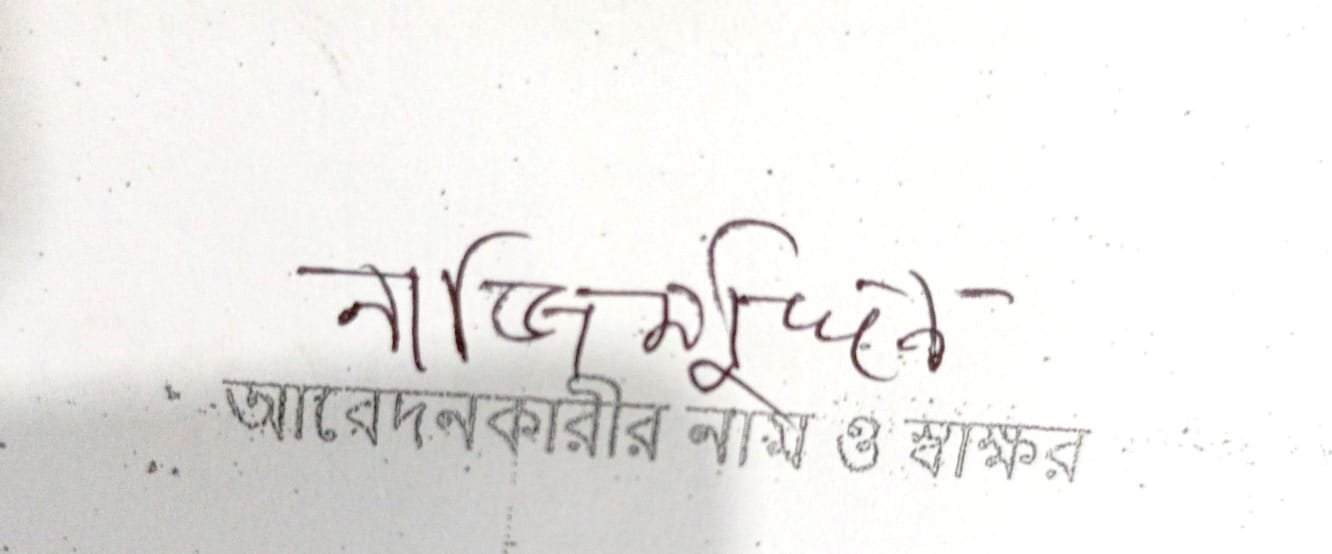 নাজিমুদ্দিন
আবেদনকারীর নাম ও স্বাক্ষর